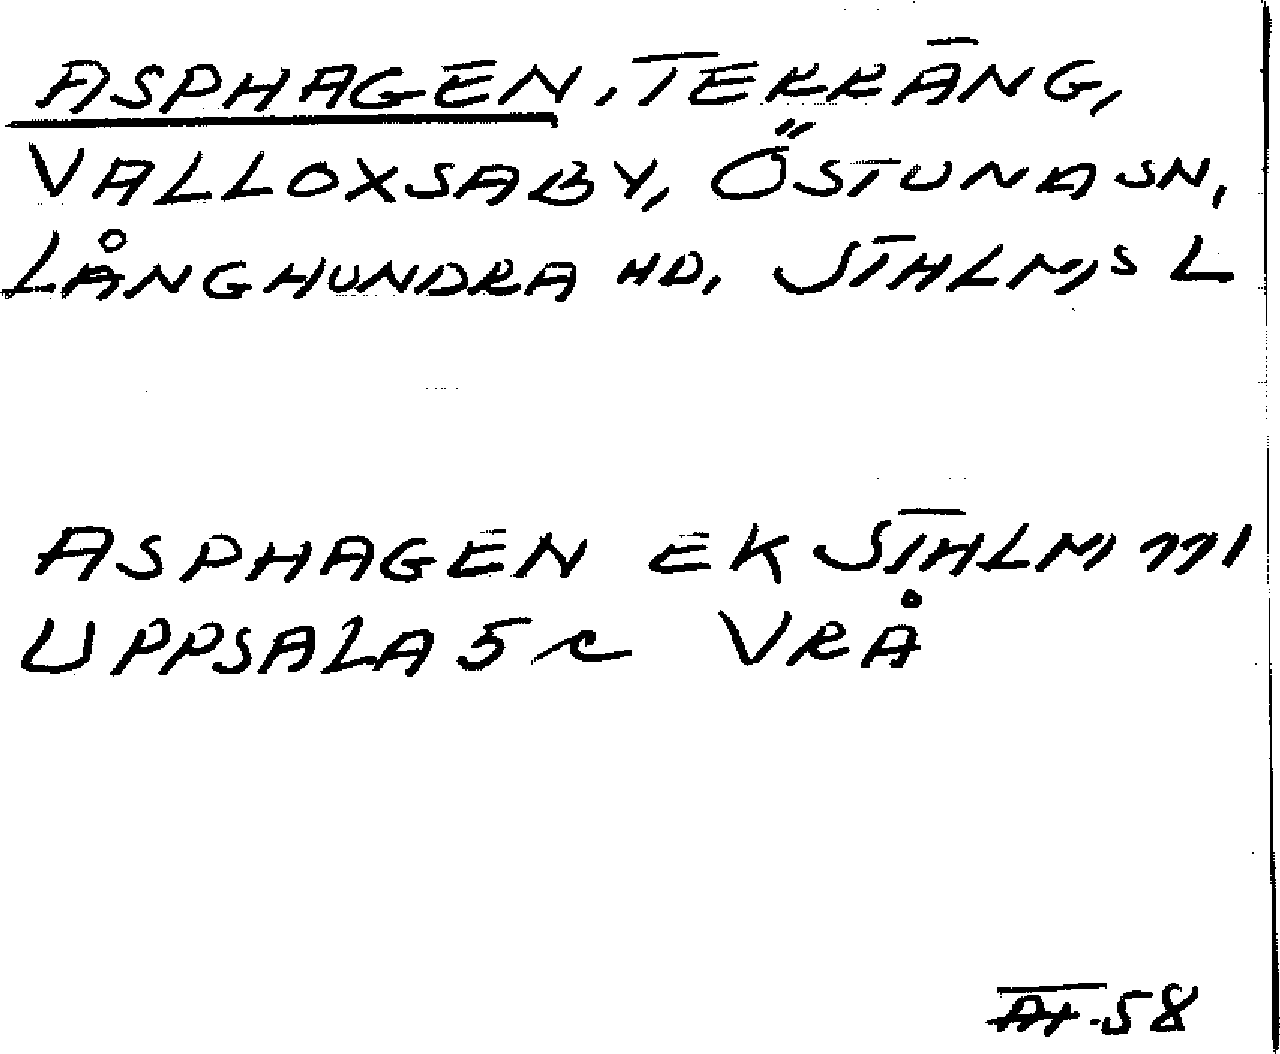 ASPHAGEN, TERRÄNG,
VALLOXSÄBY, ÖSTUNA SN,
LÅNGHUNDRA HD, STHLMS L
ASPHAGEN EK STHLM 1771
UPPSALA 5 c VRÅ
58